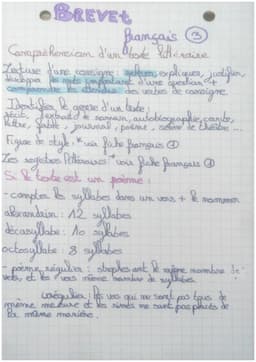 BREVET
français ③
Compréhension d'un texte littéraire
Lecture d'une consigne : relever, expliquer, justifier,
développer les mots important d'une question +
comprendre les attendus des verbes de consigne
Identifier le genre d'un texte :
récit, extrait de romain, autobiographie, conte,
lettre, fable, journal, poème, scène de théâtre ...
Figure de style : * voir fiche français ①
Les registres littéraires * voir fiche français ①
Si le texte est un poème :
- compter les syllabes dans un vers + le nommer
alexandrin : 12 syllabes
décasyllabe : 10 syllabes
octosyllabe : 8 syllabes
- poème régulier : strophes ont le même nombre de
vers, et les vers même nombre de syllabes
irrégulier : les vers qui ne sont pas tous de
même mesure et les rimes ne sont pas placés de
la même manière.